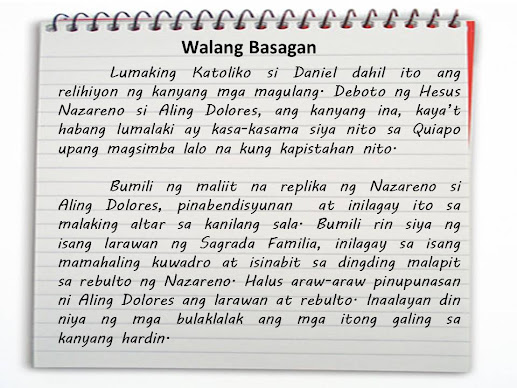 Walang Basagan
Lumaking Katoliko si Daniel dahil ito ang
relihiyon ng kanyang mga magulang. Deboto ng Hesus
Nazareno si Aling Dolores, ang kanyang ina, kaya't
habang lumalaki ay kasa-kasama siya nito sa Quiapo
upang magsimba lalo na kung kapistahan nito.
Bumili ng maliit na replika ng Nazareno si
Aling Dolores, pinabendisyunan at inilagay ito sa
malaking altar sa kanilang sala. Bumili rin siya ng
isang larawan ng Sagrada Familia, inilagay sa isang
mamahaling kuwadro at isinabit sa dingding malapit
sa rebulto ng Nazareno. Halus araw-araw pinupunasan
ni Aling Dolores ang larawan at rebulto. Inaalayan din
niya ng mga bulaklalak ang mga itong galing sa
kanyang hardin.